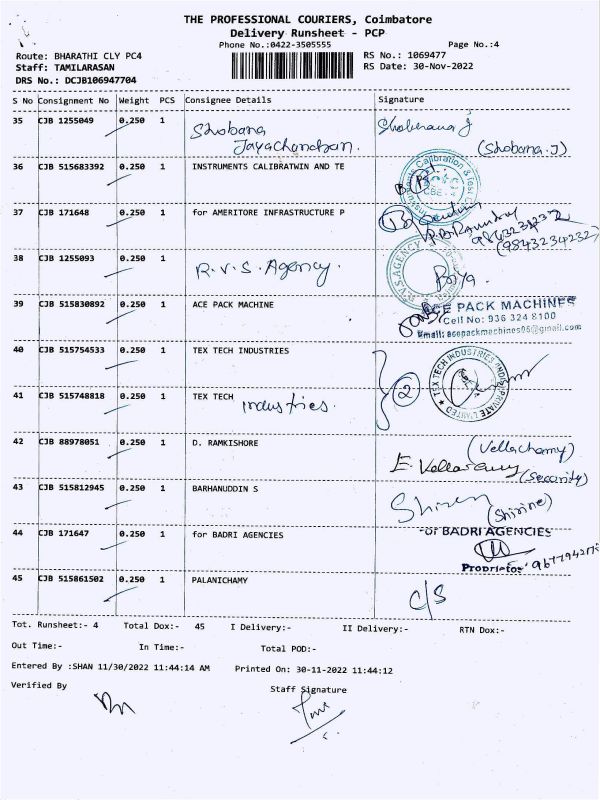 THE PROFESSIONAL COURIERS, Coimbatore
Delivery Runsheet - PCP
Phone No.:0422-3505555
Page No.:4
Route: BHARATHI CLY PC4
RS No.: 1069477
Staff: TAMILARASAN
RS Date: 30-Nov-2022
DRS No.: DCJB106947704
S No Consignment No Weight PCS Consignee Details Signature
35 CJB 1255049 0.250 1 Shobana Jayachandran.
(Shobana.J)
36 CJB 515683392 0.250 1 INSTRUMENTS CALIBRATWIN AND TE
37 CJB 171648 0.250 1 for AMERITORE INFRASTRUCTURE P
9843234232
(9843234232)
38 CJB 1255093 0.250 1 R.V.S. Agency.
R.V.S.AGENCY
Priya.
39 CJB 515830892 0.250 1 ACE PACK MACHINE
ACE PACK MACHINES
Cell No: 936 324 8100
Email: acepackmachines06@gmail.com
40 CJB 515754533 0.250 1 TEX TECH INDUSTRIES
TEX TECH INDUSTRIES (INDIA) PRIVATE LIMITED
41 CJB 515748818 0.250 1 TEX TECH industries.
2
42 CJB 88978051 0.250 1 D. RAMKISHORE
(Vellachamy)
(Security)
43 CJB 515812945 0.250 1 BARHANUDDIN S
(Shirine)
44 CJB 171647 0.250 1 for BADRI AGENCIES
For BADRI AGENCIES
Proprietor
45 CJB 515861502 0.250 1 PALANICHAMY
C/S
Tot. Runsheet:- 4 Total Dox:- 45 I Delivery:- II Delivery:- RTN Dox:-
Out Time:- In Time:- Total POD:-
Entered By :SHAN 11/30/2022 11:44:14 AM Printed On: 30-11-2022 11:44:12
Verified By Staff Signature